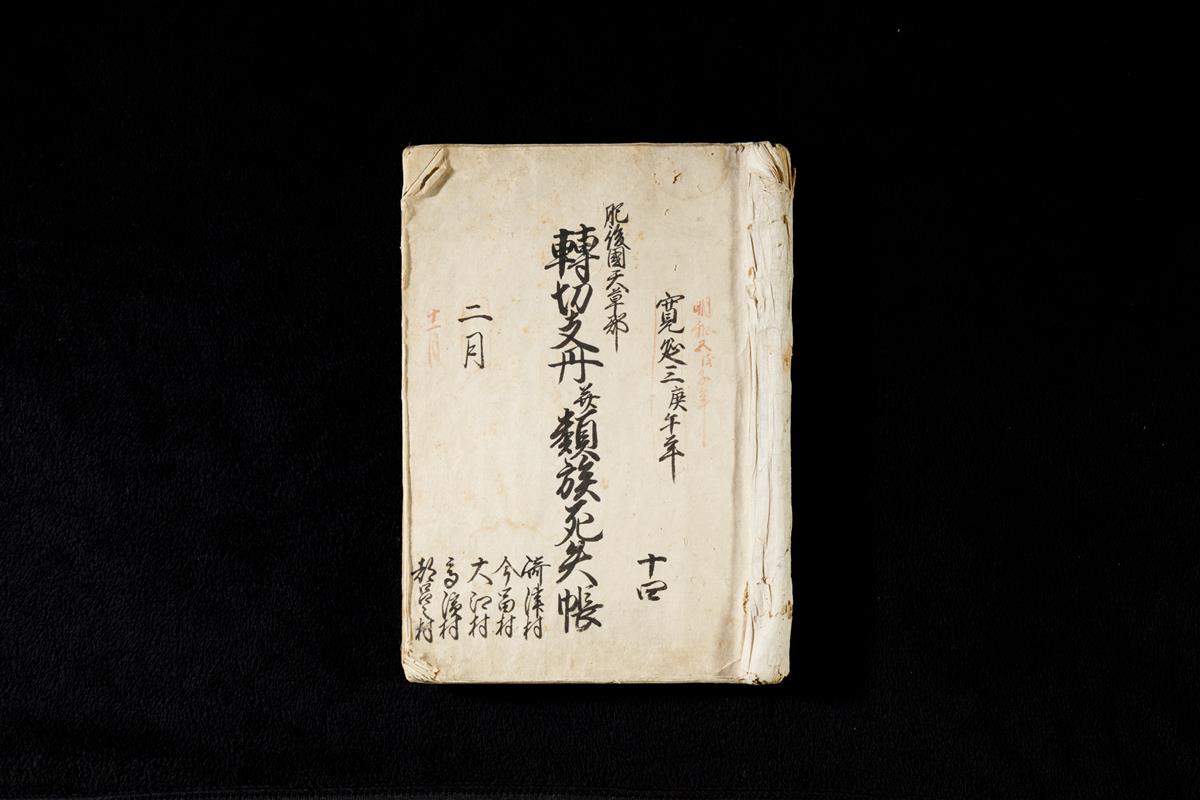 明和五戊子年
寛延三庚午年
十四
肥後國天草郡
轉切支丹并類族死失帳
崎津村
今富村
大江村
高濱村
都呂々村
二月
十一月